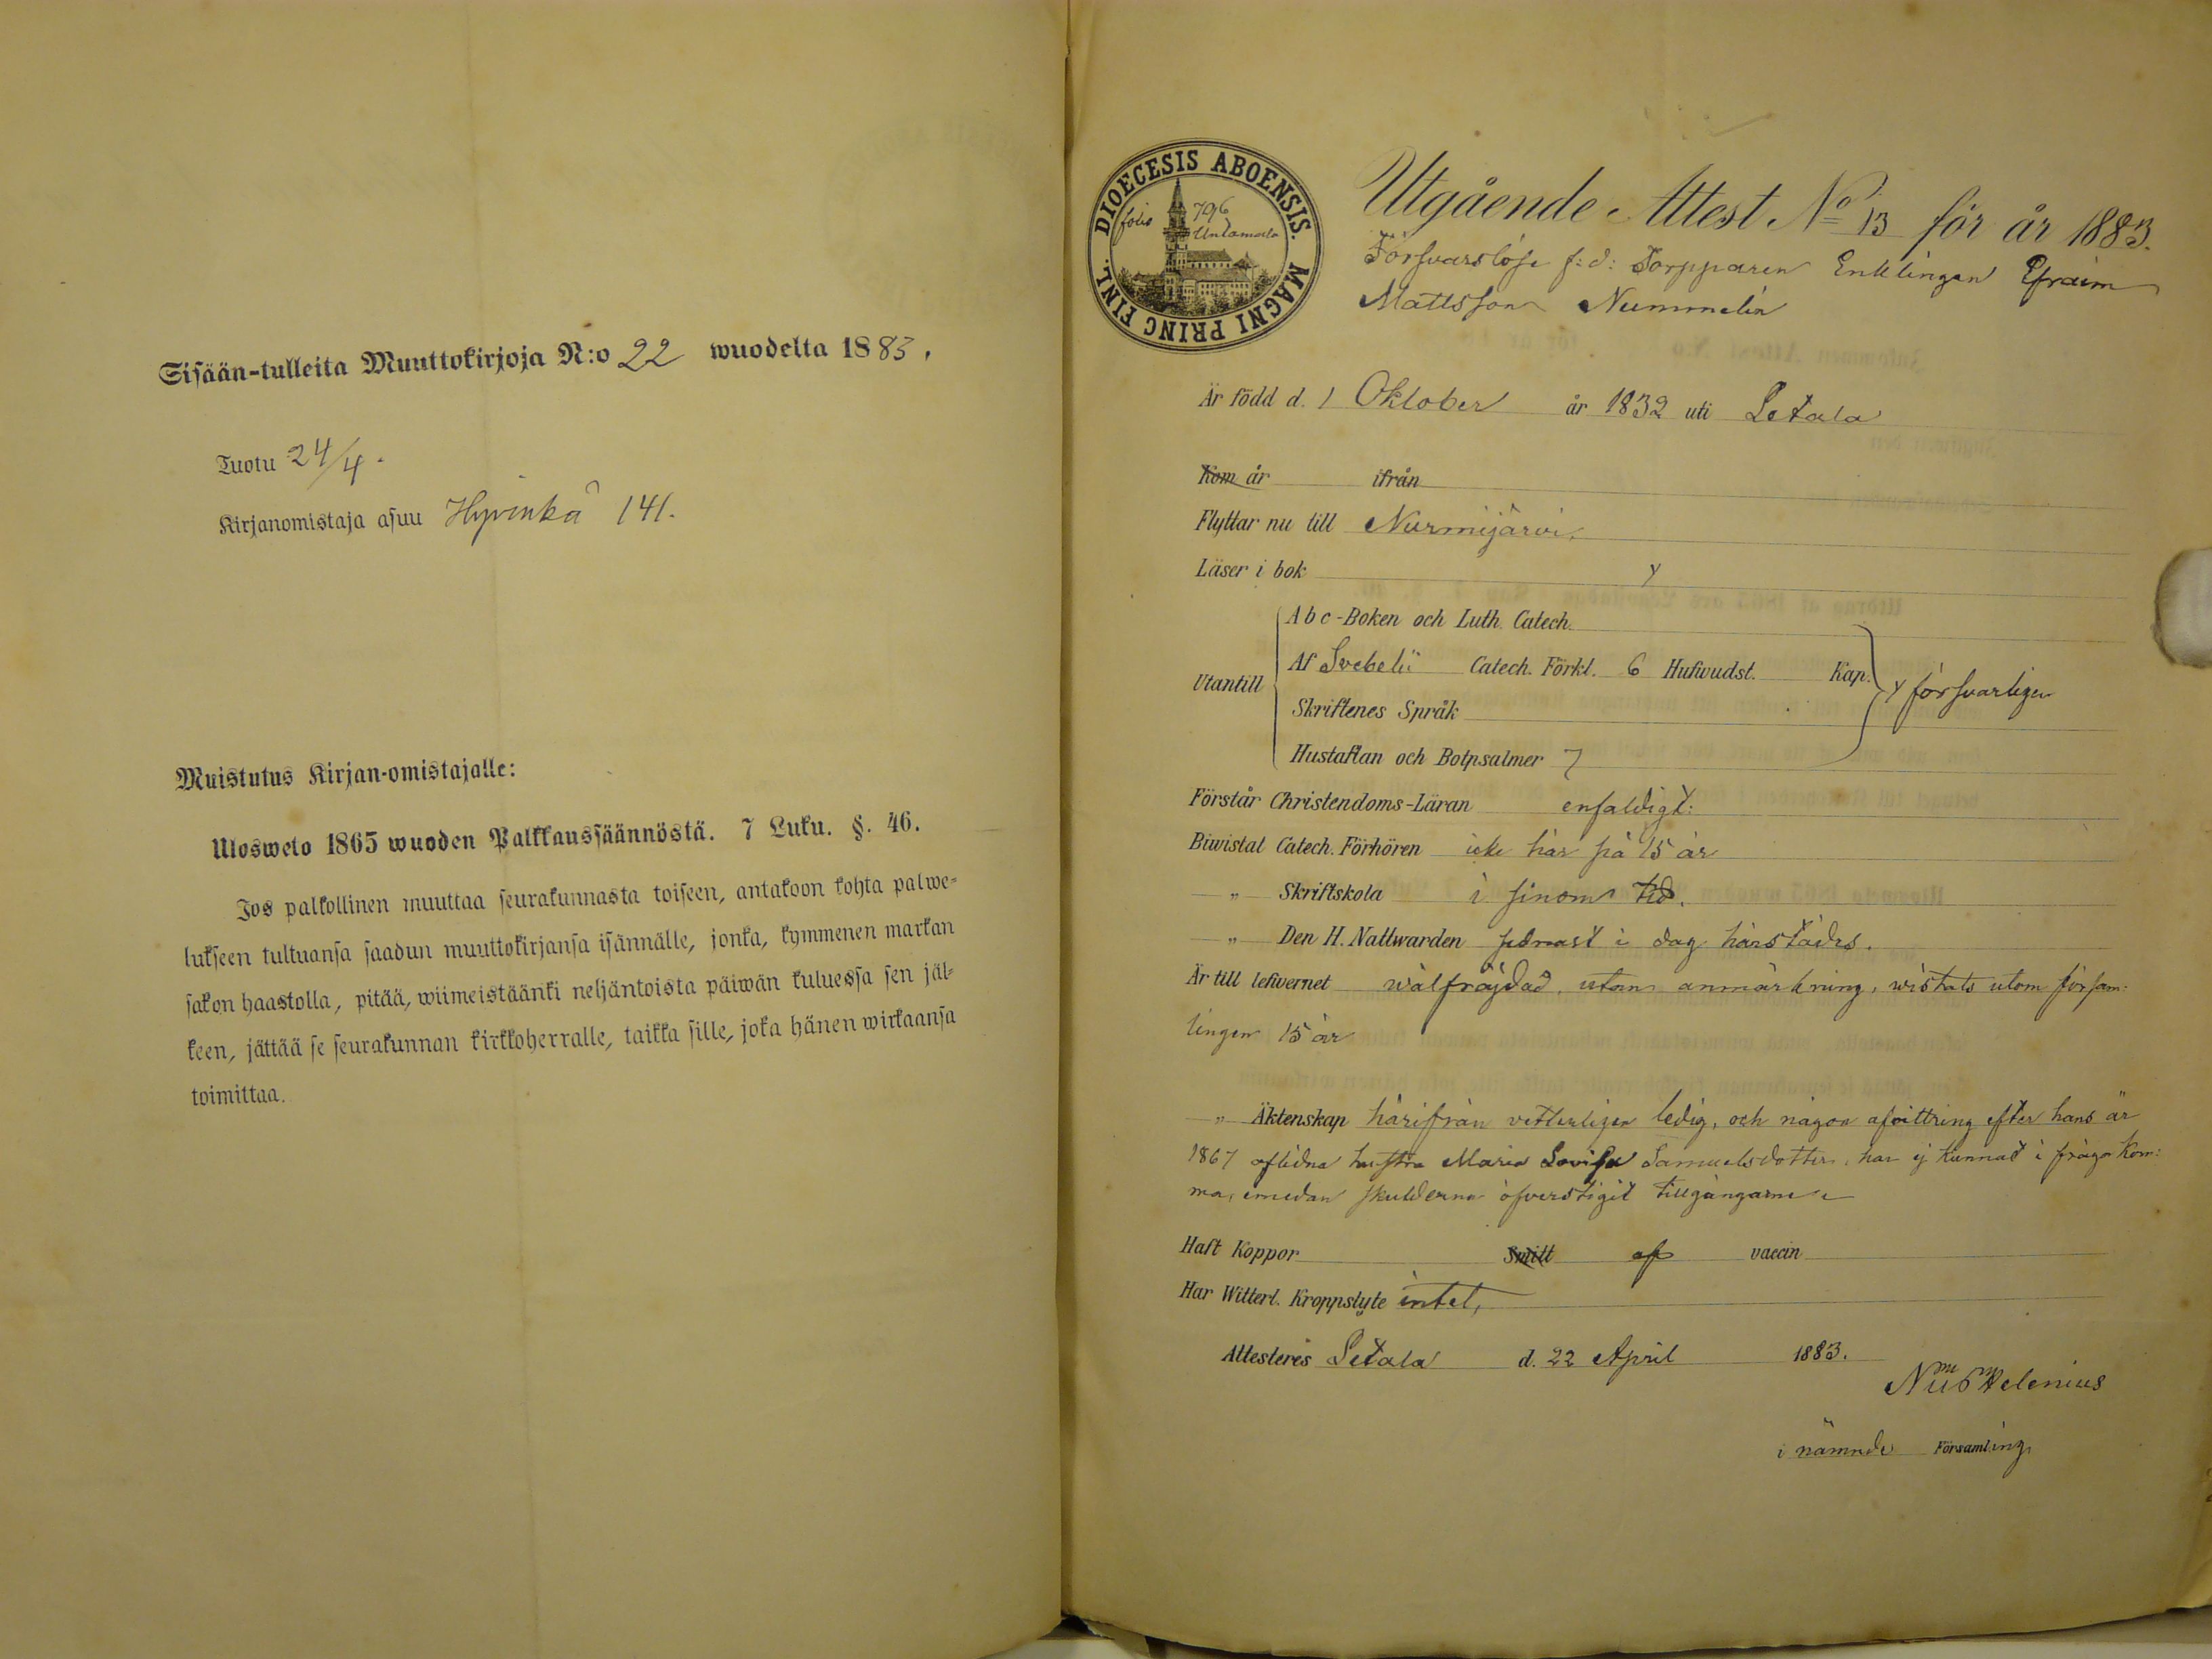 Sisään-tulleita Muuttokirjoja N:o 22 wuodelta 1883.
Tuotu 24/4.
Kirjanomistaja asuu Hyvinkä 141.
Muistutus Kirjan-omistajalle:
Ulosweto 1865 wuoden Palkkaussäännöstä. 7 Luku. §. 46.
Jos palkollinen muuttaa seurakunnasta toiseen, antakoon kohta palwe-
lukseen tultuansa saadun muuttokirjansa isännälle, jonka, kymmenen markan
sakon haastolla, pitää, wiimeistäänki neljäntoista päiwän kuluessa sen jäl-
keen, jättää se seurakunnan kirkkoherralle, taikka sille, joka hänen wirkaansa
toimittaa.
DIOECESIS ABOENSIS. MAGNI PRINC FINL.
folio 796
Untamala
Utgående Attest No 13 för år 1883.
Försvarslöse f:d: Torpparen Enklingen Efraim
Mattsson Nummelin
Är född d. 1 Oktober år 1832 uti Letala
Kom år ifrån
Flyttar nu till Nurmijärvi.
Läser i bok y
Utantill
Abc-Boken och Luth. Catech.
Af Svebelii Catech. Förkl. 6 Hufwudst. Kap.
y försvarligen
Skriftenes Språk
Hustaflan och Botpsalmer 7
Förstår Christendoms-Läran enfaldigt:
Biwistat Catech. Förhören icke här på 15 år
„ Skriftskola i sinom tid.
„ Den H. Nattwarden sednast i dag härstädes.
Är till lefwernet wälfräjdad, utan anmärkning, wistats utom försam:
lingen 15 år
„ Äktenskap härifrån vetterligen ledig, och någon afvittring efter hans år
1867 aflidna hustru Maria Lovisa Samuelsdotter, har ej kunnat i fråga kom:
ma, emedan skulderna öfverstigit tillgångarne
Haft Koppor Smitt af vaccin
Har Witterl. Kroppslyte intet,
Attesteres Letala d. 22 April 1883.
Helenius
i nämnde Församling.